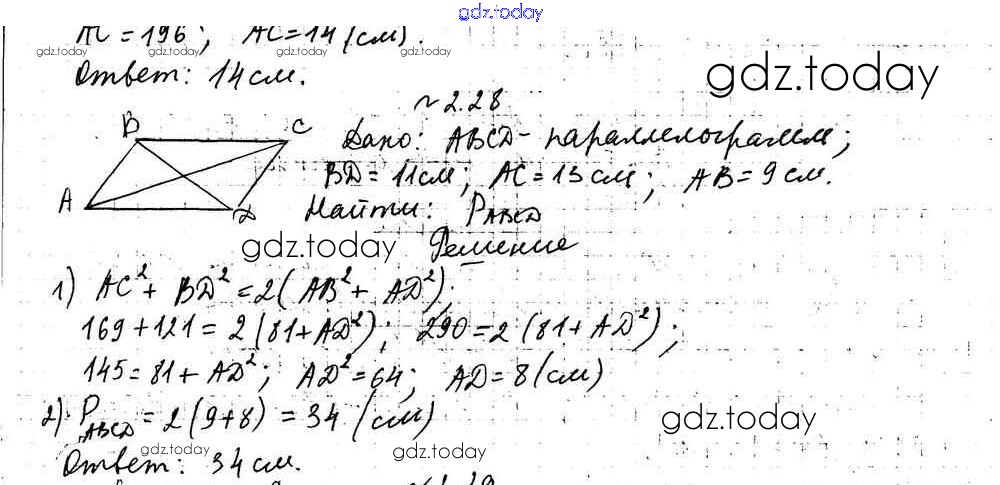 gdz.today
AC = 196; AC = 14 (см).
gdz.today gdz.today gdz.today gdz.today
Ответ: 14 см.
gdz.today
№ 2.28
B C
A D
Дано: ABCD - параллелограмм;
BD = 11 см; AC = 13 см; AB = 9 см.
Найти: P_ABCD
gdz.today Решение
1) AC² + BD² = 2(AB² + AD²);
169 + 121 = 2(81 + AD²); 290 = 2(81 + AD²);
145 = 81 + AD²; AD² = 64; AD = 8 (см)
2) P_ABCD = 2(9+8) = 34 (см)
gdz.today
gdz.today gdz.today
Ответ: 34 см.